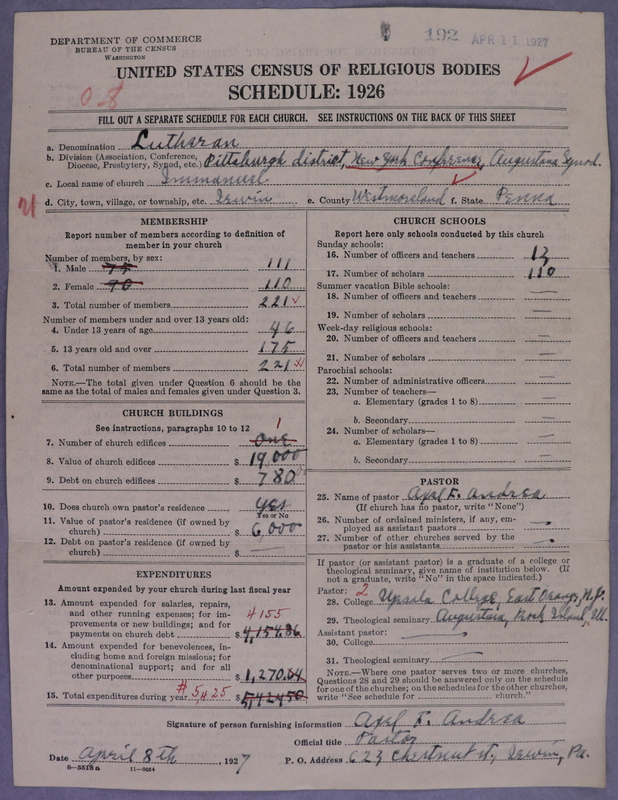 192 APR 11 1927
DEPARTMENT OF COMMERCE
BUREAU OF THE CENSUS
WASHINGTON
UNITED STATES CENSUS OF RELIGIOUS BODIES
SCHEDULE: 1926
FILL OUT A SEPARATE SCHEDULE FOR EACH CHURCH. SEE INSTRUCTIONS ON THE BACK OF THIS SHEET
a. Denomination Lutheran
b. Division (Association, Conference, Diocese, Presbytery, Synod, etc.) Pittsburgh district, New York Conference, Augustana Synod.
c. Local name of church Immanuel
d. City, town, village, or township, etc. Irwin e. County Westmoreland f. State Penna
MEMBERSHIP
Report number of members according to definition of
member in your church
Number of members, by sex:
1. Male 75 111
2. Female 70 110
3. Total number of members 221
Number of members under and over 13 years old:
4. Under 13 years of age 46
5. 13 years old and over 175
6. Total number of members 221
NOTE.—The total given under Question 6 should be
same as the total of males and females given under Question 3.
CHURCH BUILDINGS
See instructions, paragraphs 10 to 12
1
7. Number of church edifices One
8. Value of church edifices $ 19,000
9. Debt on church edifices $ 780.00
10. Does church own pastor's residence yes
Yes or No
11. Value of pastor's residence (if owned by
church) $ 6,000
12. Debt on pastor's residence (if owned by
church) $ —
EXPENDITURES
Amount expended by your church during last fiscal year
13. Amount expended for salaries, repairs,
and other running expenses; for im-
provements or new buildings; and for 4155
payments on church debt $ 4,154.86
14. Amount expended for benevolences, in-
cluding home and foreign missions; for
denominational support; and for all
other purposes $ 1,270.64
15. Total expenditures during year #5,425 $ 5,424.50
CHURCH SCHOOLS
Report here only schools conducted by this church
Sunday schools:
16. Number of officers and teachers 13
17. Number of scholars 110
Summer vacation Bible schools:
18. Number of officers and teachers —
19. Number of scholars —
Week-day religious schools:
20. Number of officers and teachers —
21. Number of scholars —
Parochial schools:
22. Number of administrative officers —
23. Number of teachers—
a. Elementary (grades 1 to 8) —
b. Secondary —
24. Number of scholars—
a. Elementary (grades 1 to 8) —
b. Secondary —
PASTOR
25. Name of pastor Axel F. Andrea
(If church has no pastor, write "None")
26. Number of ordained ministers, if any, em-
ployed as assistant pastors —
27. Number of other churches served by the
pastor or his assistants —
If pastor (or assistant pastor) is a graduate of a college or
theological seminary, give name of institution below. (If
not a graduate, write "No" in the space indicated.)
Pastor: 2
28. College Upsala College, East Orange, N.J.
29. Theological seminary Augustana, Rock Island, Ill.
Assistant pastor:
30. College —
31. Theological seminary —
NOTE.—Where one pastor serves two or more churches,
Questions 28 and 29 should be answered only on the schedule
for one of the churches; on the schedules for the other churches,
write "See schedule for ............ church."
Signature of person furnishing information Axel F. Andrea
Official title Pastor
Date April 8th, 1927 P. O. Address 623 Chestnut st, Irwin, Pa.
8—5518 a 11—9054